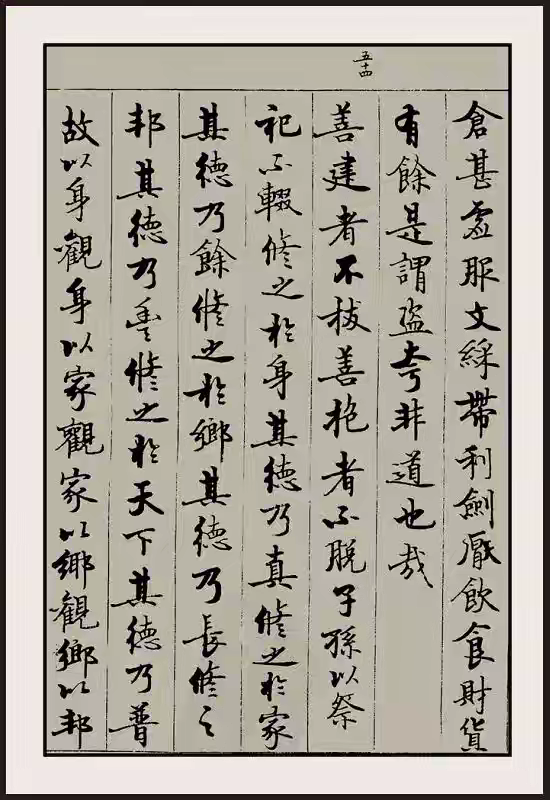 倉甚虛服文綵帶利劍厭飲食財貨
有餘是謂盜夸非道也哉
五十四
善建者不拔善抱者不脫子孫以祭
祀不輟修之於身其德乃真修之於家
其德乃餘修之於鄉其德乃長修之
邦其德乃豐修之於天下其德乃普
故以身觀身以家觀家以鄉觀鄉以邦